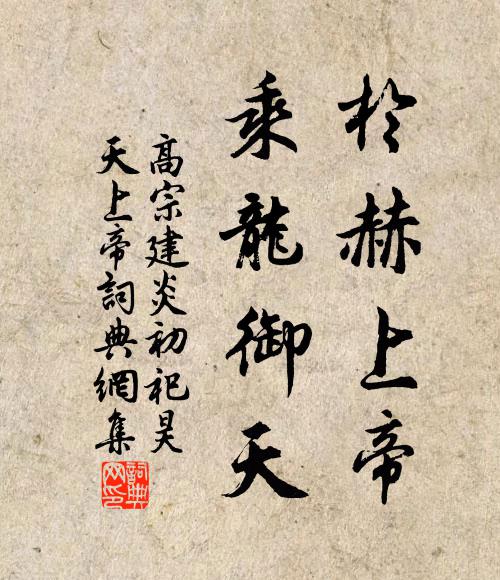 於赫上帝
乘龍御天
高宗建炎初祀昊
天上帝詞典網集
詞典
网印